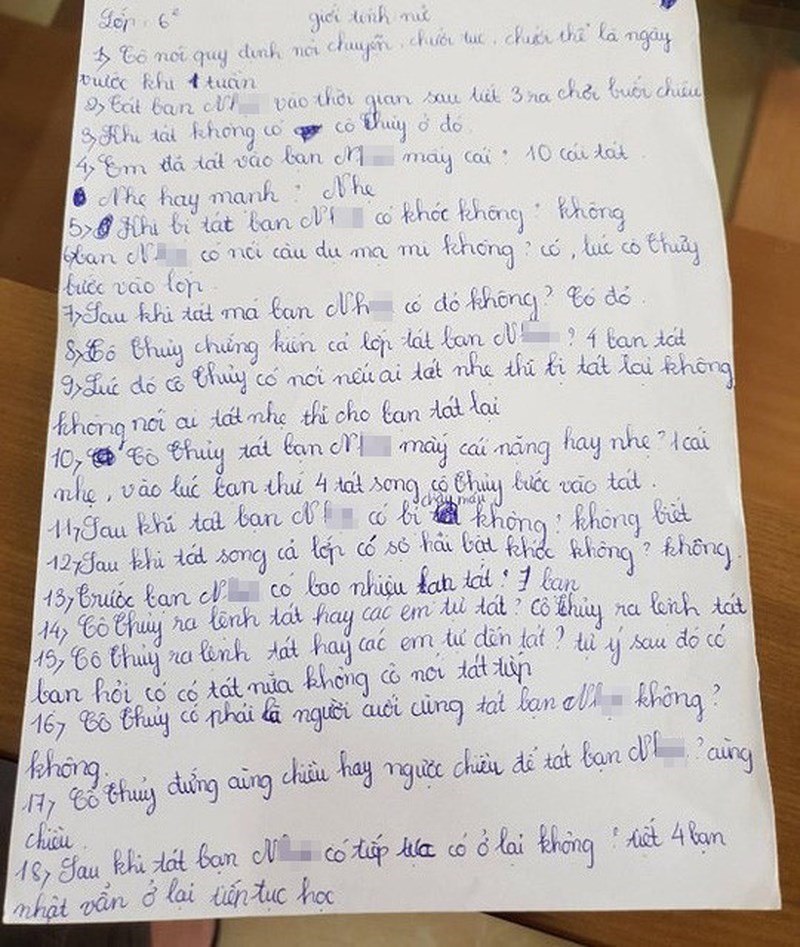 Lớp: 6² giới tính nữ
1, Cô nói quy định nói chuyện, chửi tục, chửi thề là ngày
trước khi 1 tuần
2, Tát bạn Nh vào thời gian sau tiết 3 ra chơi buổi chiều
3, Khi tát không có cô Thủy ở đó
4, Em đã tát vào bạn Nh mấy cái: 10 cái tát
Nhẹ hay mạnh: Nhẹ
5, Khi bị tát bạn Nh có khóc không? không
6, bạn Nh có nói câu dụ mạ mi không? có, lúc cô Thủy
bước vào lớp
7, Sau khi tát má bạn Nh có đỏ không? Có đỏ.
8, Cô Thủy chứng kiến cả lớp tát bạn Nh? 4 bạn tát
9, Lúc đó cô Thủy có nói nếu ai tát nhẹ thì bị tát lại không
không nói ai tát nhẹ thì cho bạn tát lại
10, Cô Thủy tát bạn Nh mấy cái nặng hay nhẹ? 1 cái
nhẹ, vào lúc bạn thứ 4 tát song cô Thủy bước vào tát.
11, Sau khi tát bạn Nh có bị chảy máu không? không biết
12, Sau khi tát song cả lớp có sợ hãi bật khóc không? không.
13, Trước bạn Nh có bao nhiêu bạn tát? 7 bạn
14, Cô Thủy ra lệnh tát hay các em tự tát? Cô Thủy ra lệnh tát
15, Cô Thủy ra lệnh tát hay các em tự đến tát? tự ý sau đó có
bạn hỏi có có tát nữa không cô nói tát tiếp
16, Cô Thủy có phải là người cuối cùng tát bạn Nh không?
không.
17, Cô Thủy đứng cùng chiều hay ngược chiều để tát bạn Nh? cùng
chiều.
18, Sau khi tát bạn Nh có tiếp tục có ở lại không? tiết 4 bạn
nhật vẫn ở lại tiếp tục học